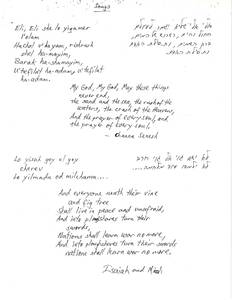 Songs
Eli, Eli she lo yigamer
l'olam
Hachol v'hayam, rishrush
shel ha-mayim,
Barak ha-shamayim,
U'tefilat ha-adam, U'tefilat
ha-adam.
My God, My God, May these things
never end,
the sand and the sea, the rush of the
waters, the crash of the Heavens,
And the prayer of every soul, and
the prayer of every soul.
- Channa Senesh
Lo yisah goy el goy
cherev
Lo yilmadu od milchama....
לא ישא גוי אל גוי חרב
לא ילמדו עוד מלחמה....
And everyone neath their vine
and fig tree
Shall live in peace and unafraid,
And into plowshares turn their
swords,
Nations shall learn war no more,
And into plowshares turn their swords
nations shall learn war no more.
Isaiah and Micah